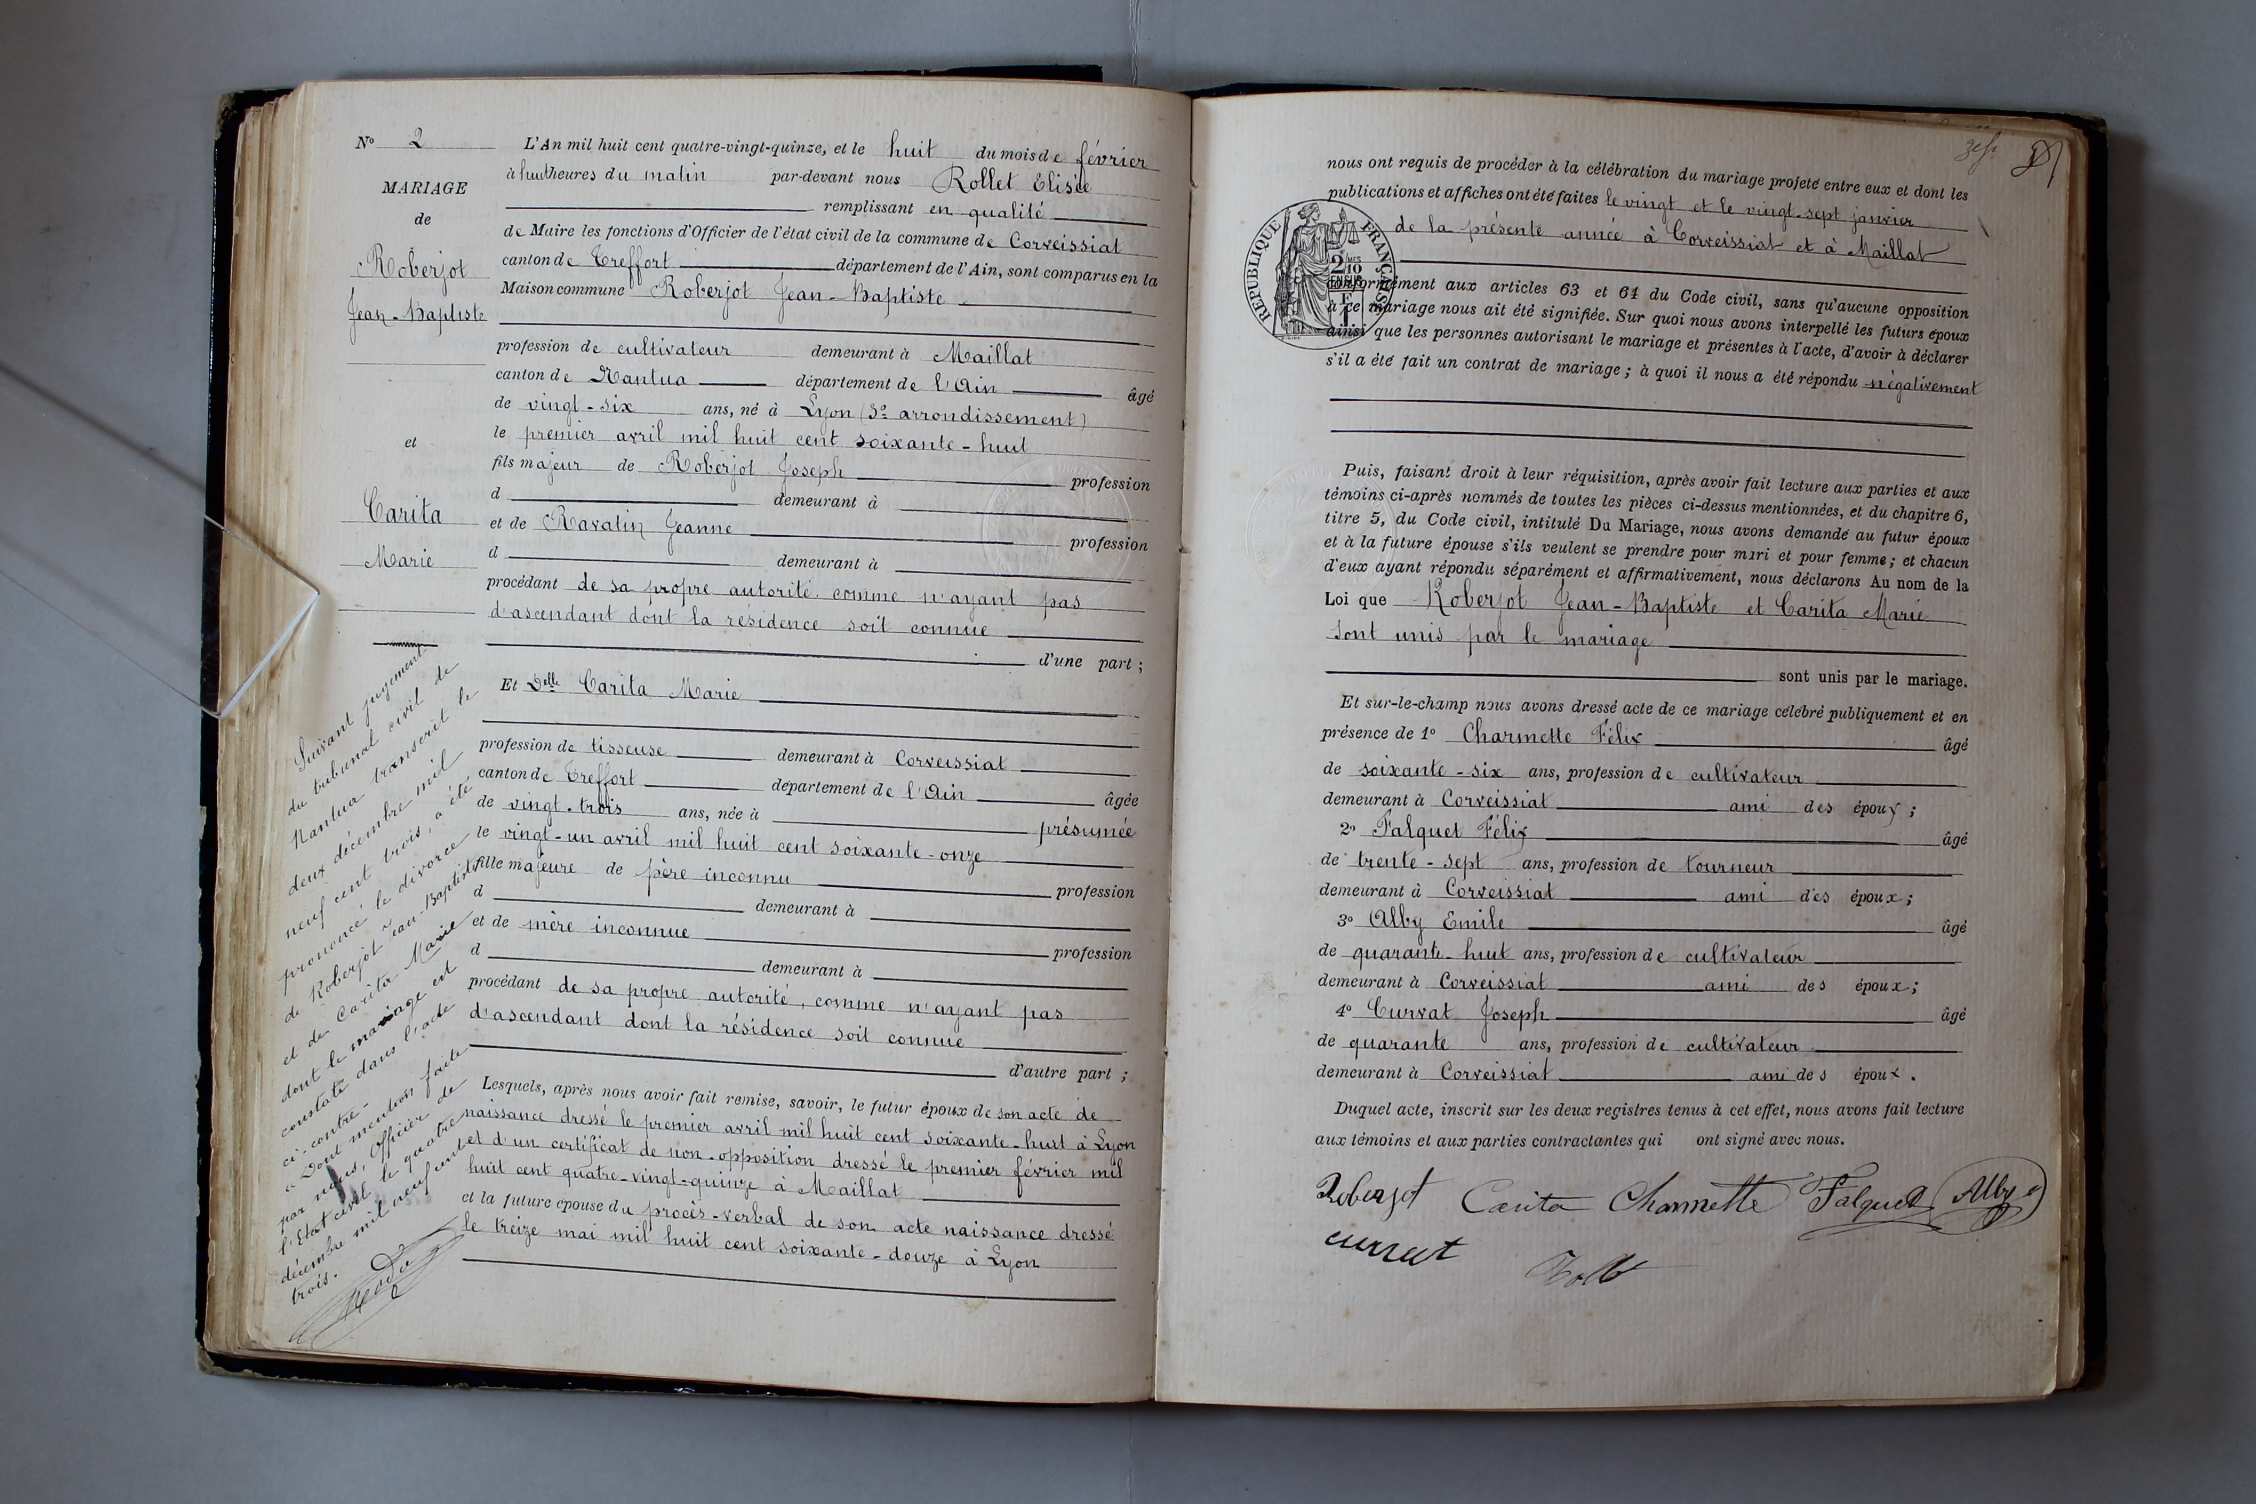 N° 2
MARIAGE
de
Roberjot
Jean-Baptiste
et
Carita
Marie
Suivant jugement
du tribunal civil de
Nantua transcrit le
deux décembre mil
neuf cent trois, a été
prononcé le divorce
de Roberjot Jean-Baptiste
et de Carita Marie
dont le mariage est
constaté dans l'acte
ci-contre.
Dont mention faite
par nous, Officier de
l'Etat civil le quatre
décembre mil neuf cent
trois.
L'An mil huit cent quatre-vingt-quinze, et le huit du mois de février
à huit heures du matin par-devant nous Rollet Elisée
remplissant en qualité
de Maire les fonctions d'Officier de l'état civil de la commune de Corveissiat
canton de Treffort département de l'Ain, sont comparus en la
Maison commune Roberjot Jean-Baptiste
profession de cultivateur demeurant à Maillat
canton de Nantua département de l'Ain âgé
de vingt-six ans, né à Lyon (3e arrondissement)
le premier avril mil huit cent soixante-huit
fils majeur de Roberjot Joseph profession
d demeurant à
et de Ravatin Jeanne profession
d demeurant à
procédant de sa propre autorité comme n'ayant pas
d'ascendant dont la résidence soit connue
d'une part ;
Et Delle Carita Marie
profession de tisseuse demeurant à Corveissiat
canton de Treffort département de l'Ain âgée
de vingt-trois ans, née à présumée
le vingt-un avril mil huit cent soixante-onze
fille majeure de père inconnu profession
d demeurant à
et de mère inconnue profession
d demeurant à
procédant de sa propre autorité, comme n'ayant pas
d'ascendant dont la résidence soit connue
d'autre part ;
Lesquels, après nous avoir fait remise, savoir, le futur époux de son acte de
naissance dressé le premier avril mil huit cent soixante-huit à Lyon
et d'un certificat de non-opposition dressé le premier février mil
huit cent quatre-vingt-quinze à Maillat
et la future épouse du procès-verbal de son acte naissance dressé
le treize mai mil huit cent soixante-douze à Lyon
nous ont requis de procéder à la célébration du mariage projeté entre eux et dont les
publications et affiches ont été faites le vingt et le vingt-sept janvier
de la présente année à Corveissiat et à Maillat
RÉPUBLIQUE FRANÇAISE
2/10
EN SUS
conformément aux articles 63 et 64 du Code civil, sans qu'aucune opposition
à ce mariage nous ait été signifiée. Sur quoi nous avons interpellé les futurs époux
ainsi que les personnes autorisant le mariage et présentes à l'acte, d'avoir à déclarer
s'il a été fait un contrat de mariage ; à quoi il nous a été répondu négativement
Puis, faisant droit à leur réquisition, après avoir fait lecture aux parties et aux
témoins ci-après nommés de toutes les pièces ci-dessus mentionnées, et du chapitre 6,
titre 5, du Code civil, intitulé Du Mariage, nous avons demandé au futur époux
et à la future épouse s'ils veulent se prendre pour mari et pour femme ; et chacun
d'eux ayant répondu séparément et affirmativement, nous déclarons Au nom de la
Loi que Roberjot Jean-Baptiste et Carita Marie
sont unis par le mariage
sont unis par le mariage.
Et sur-le-champ nous avons dressé acte de ce mariage célébré publiquement et en
présence de 1° Charmette Félix âgé
de soixante-six ans, profession de cultivateur
demeurant à Corveissiat ami des époux ;
2° Falquet Félix âgé
de trente-sept ans, profession de tourneur
demeurant à Corveissiat ami des époux ;
3° Alby Emile âgé
de quarante-huit ans, profession de cultivateur
demeurant à Corveissiat ami des époux ;
4° Curvat Joseph âgé
de quarante ans, profession de cultivateur
demeurant à Corveissiat ami des époux.
Duquel acte, inscrit sur les deux registres tenus à cet effet, nous avons fait lecture
aux témoins et aux parties contractantes qui ont signé avec nous.
Roberjot Carita Charmette Falquet Alby e
curvat